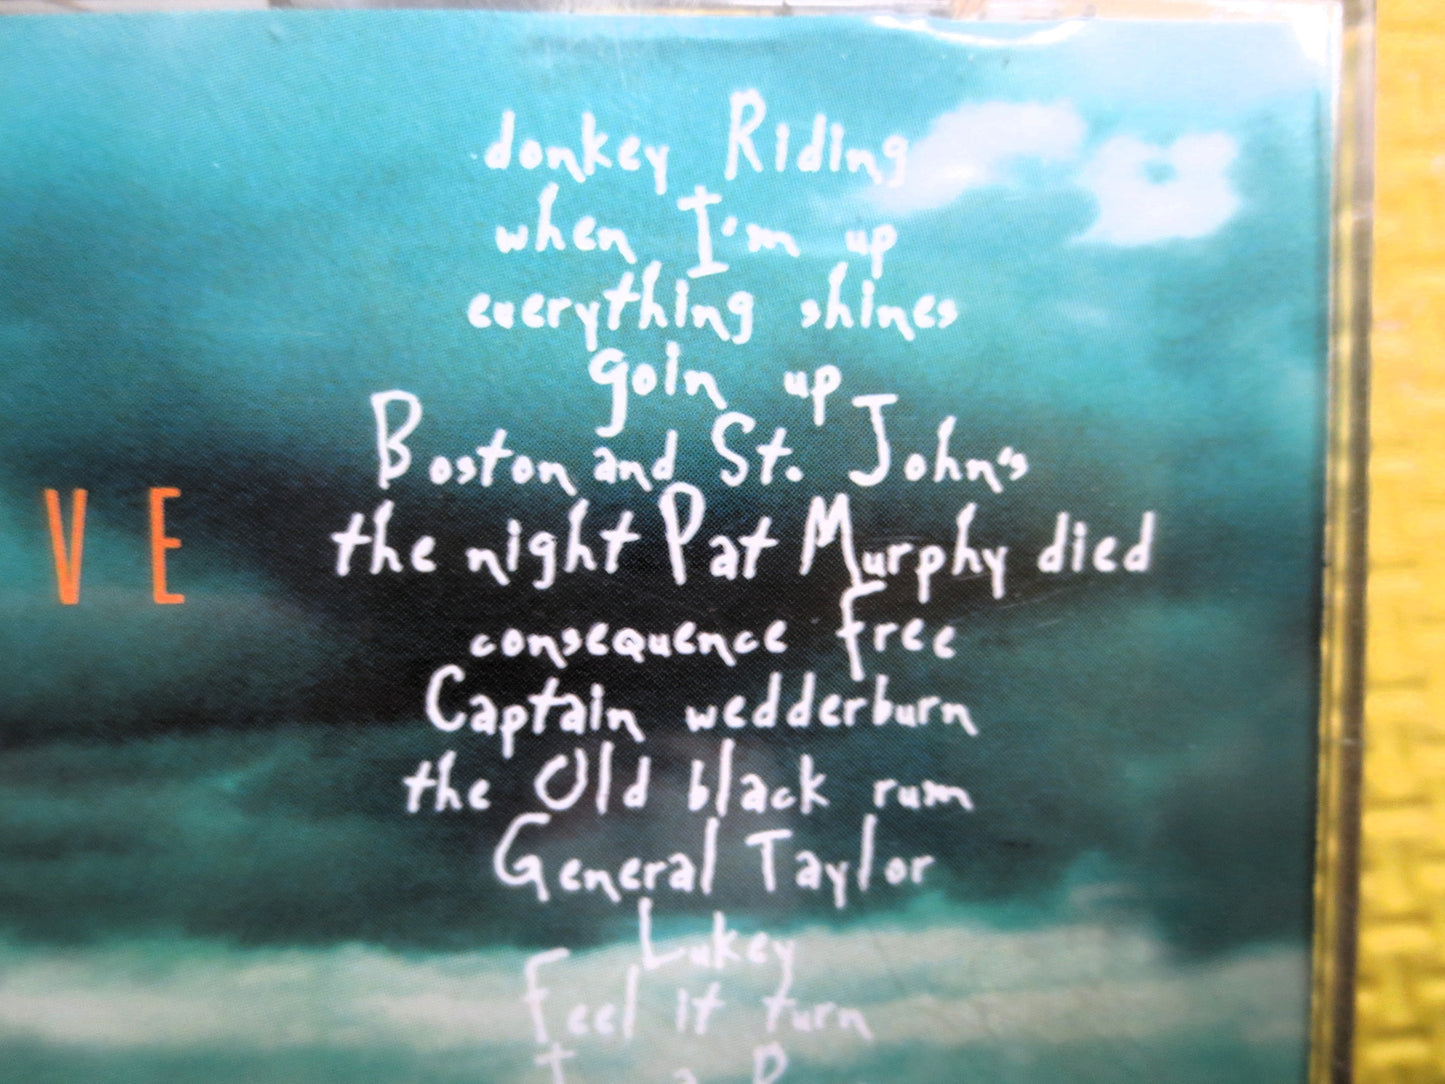 donkey Riding
when I'm up
everything shines
goin up
Boston and St. John's
the night Pat Murphy died
VE
consequence Free
Captain wedderburn
the Old black rum
General Taylor
Lukey
Feel it turn